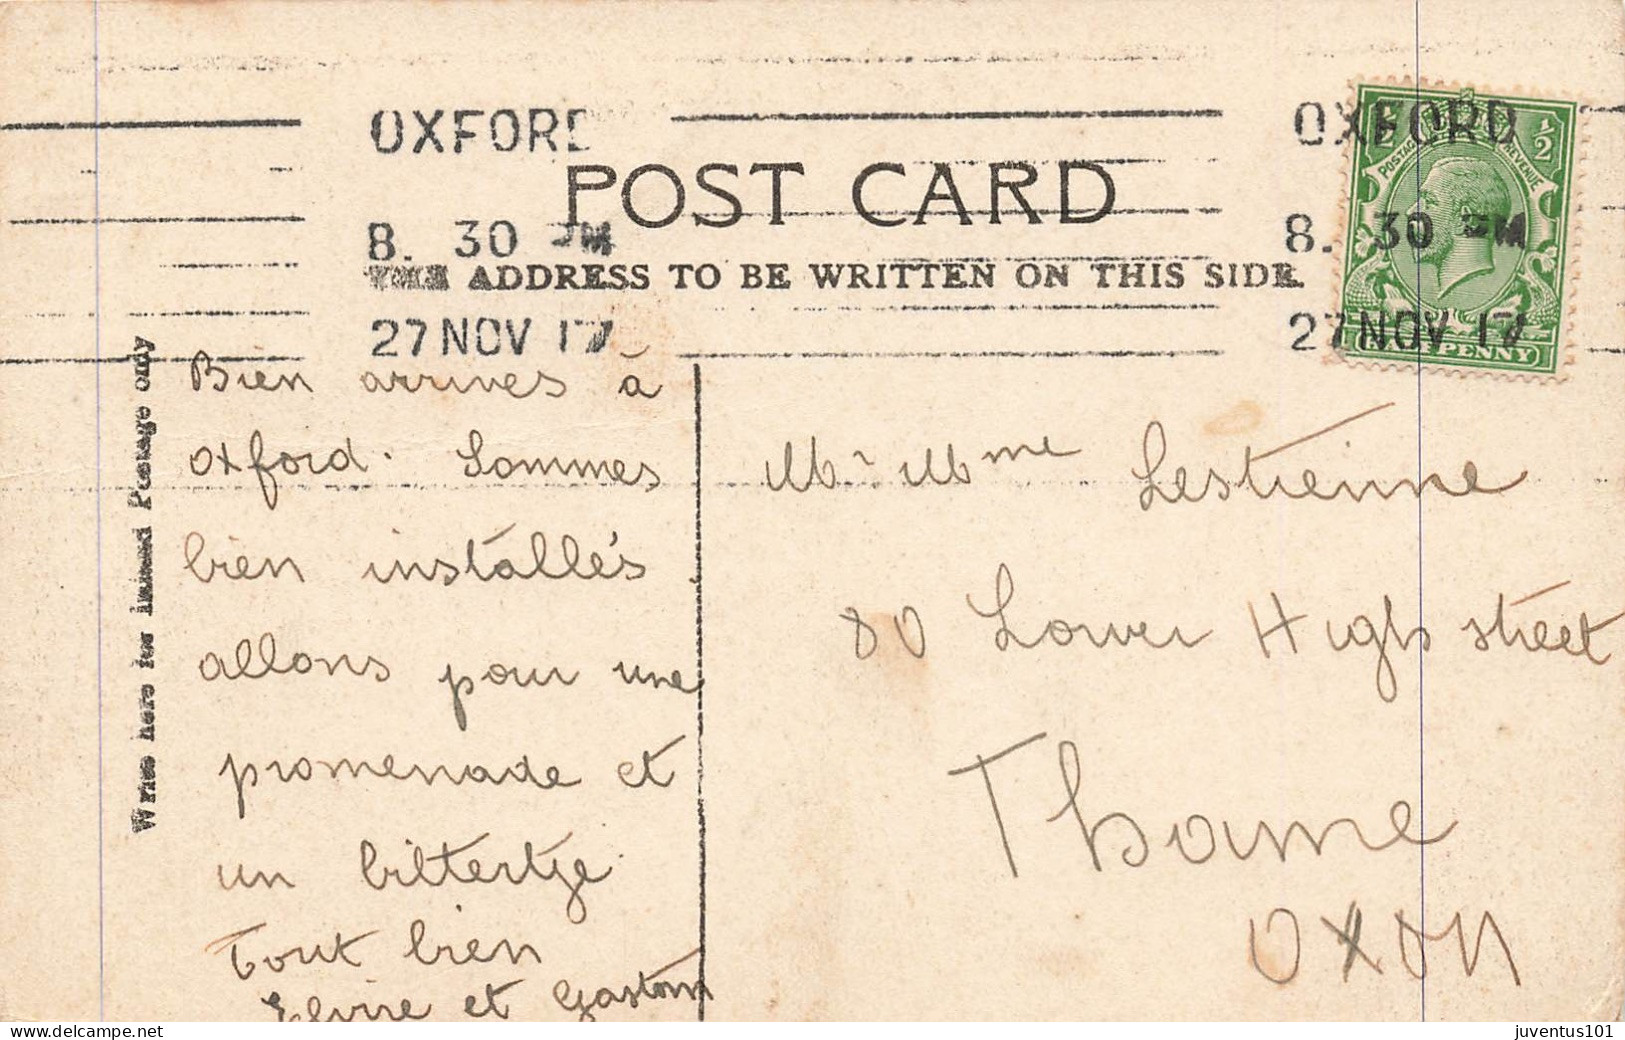 OXFORD
OXFORD
½
POSTAGE
REVENUE
POST CARD
8. 30 PM
8. 30 PM
THE ADDRESS TO BE WRITTEN ON THIS SIDE.
27 NOV 17
27 NOV 17
HALFPENNY
Write here for inland Postage only
Bien arrives à
oxford. Sommes
bien installés
allons pour une
promenade et
un bittertje
Tout bien
Elvire et Gaston
Mr. Mme Lestienne
80 Lower High street
Thame
OXON
juventus101